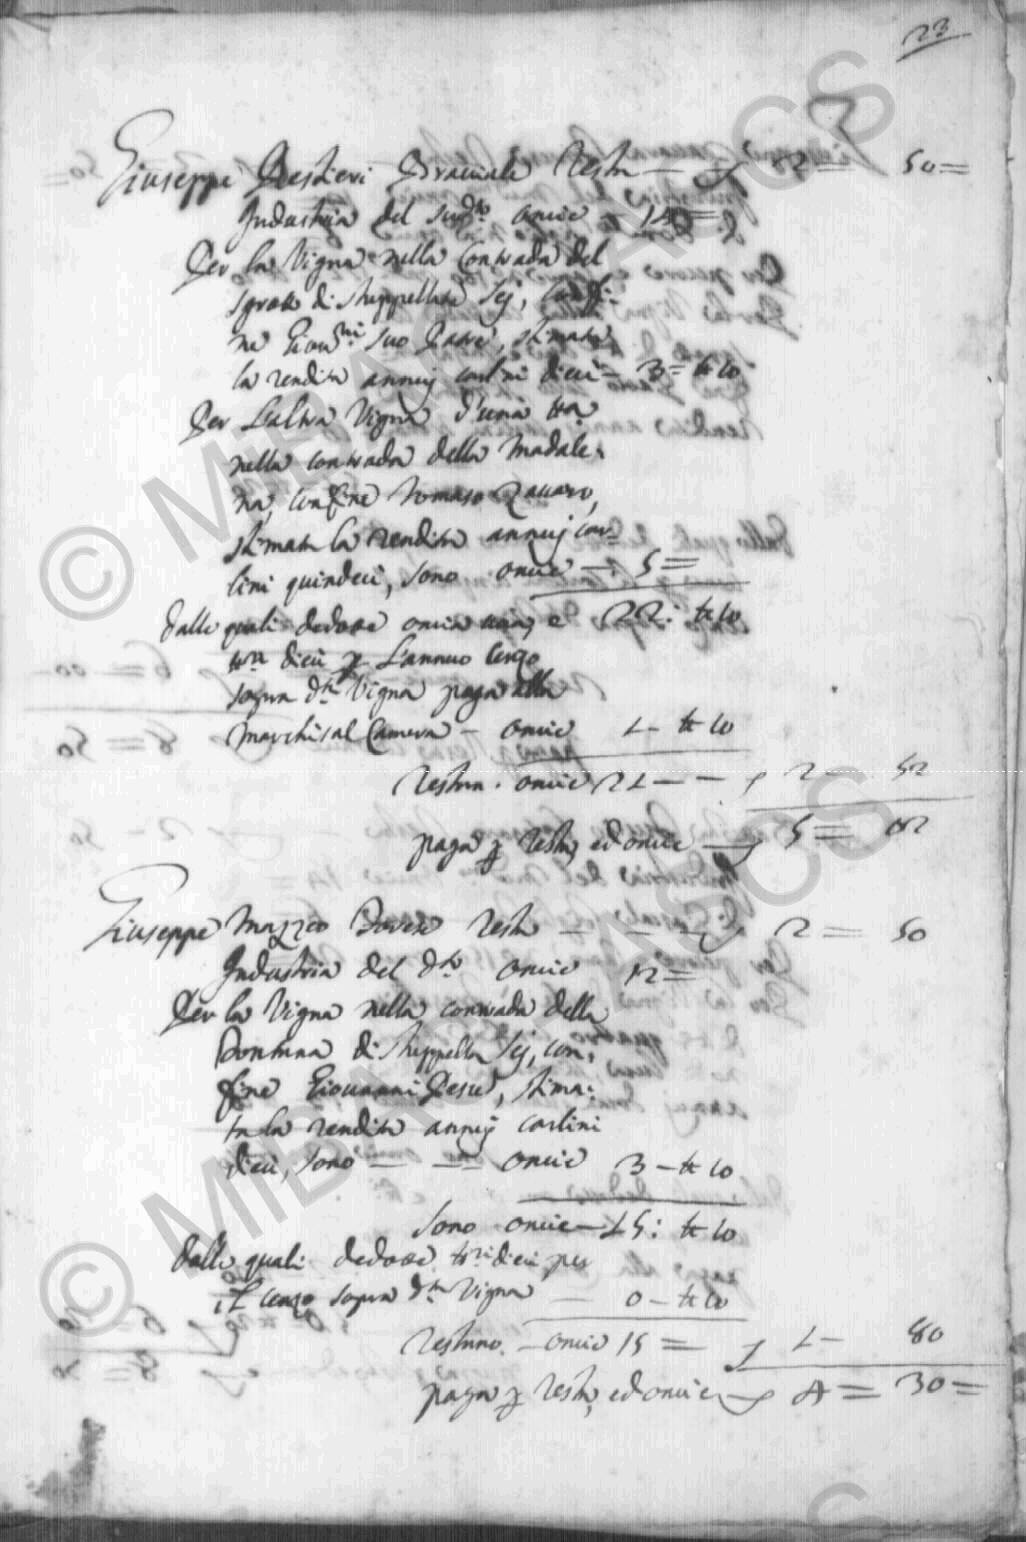 23
Giuseppe Pestieri Bracciale Testa — — 2 = 50 =
Industria del sud.to oncie — 14 =
Per la Vigna nella Contrada del
di Steppella Sej, Confi-
ne Giov.ni suo Patre, stimata
la rendita annuj carlini dieci = 3 = tt 10
Per l'altra Vigna d'una tt.a
nella contrada della Madale-
na, confine Tomaso Zaccaro,
stimata la rendita annuj car-
lini quindeci, sono oncie — 5 =
22: tt 10
Dalle quali dedotte oncia una, e
tt.a dieci per l'annuo censo
sopra d.ta Vigna paga alla
Marchisal Camera — oncie 1 - tt 10
Restano. oncie 21 — — 2 — 52
paga per testa, ed oncie — 5 = 02
Giuseppe Mazzeo Bovese Testa — — 2 = 50
Industria del d.to oncie 12 =
Per la Vigna nella contrada della
Fontana di Steppella Sej, con-
fine Giovanni Pesce, stima-
ta la rendita annuj carlini
dieci, sono — — oncie 3 - tt 10
Sono oncie — 15: tt 10
Dalle quali dedotte tt.ri dieci per
il censo sopra d.ta Vigna — 0 - tt 10
Restano. — oncie 15 = 1 — 80
paga per testa, ed oncie — 4 = 30 =
© MIBAC ASCS
© MIBAC ASCS